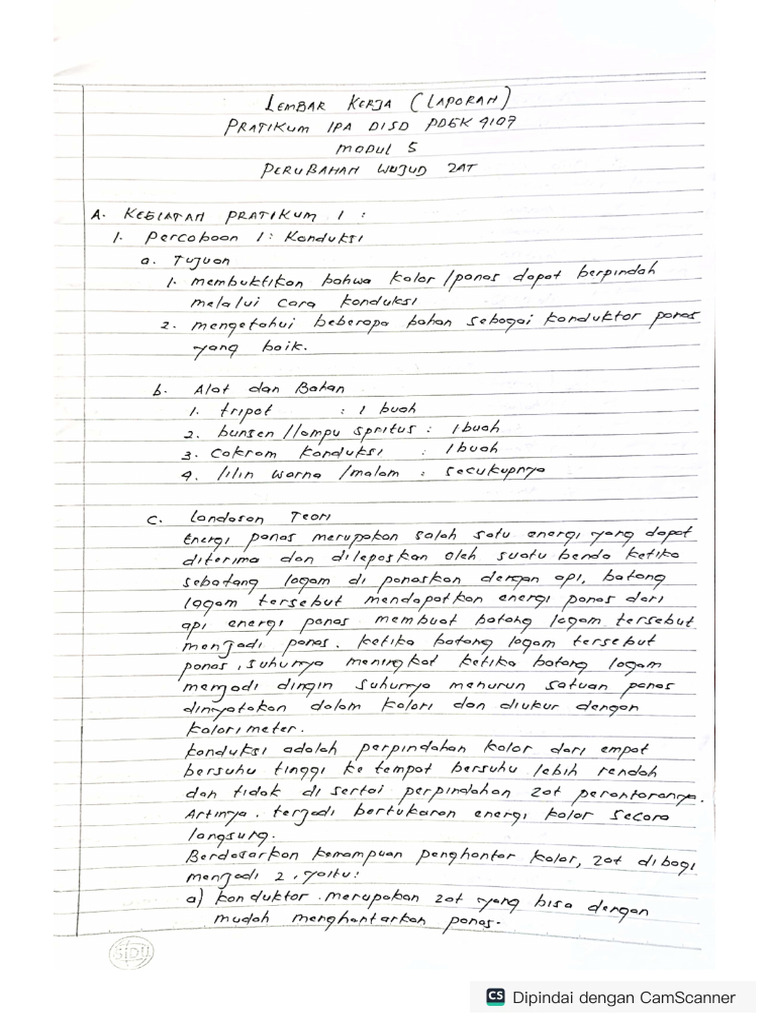 LEMBAR KERJA (LAPORAN)
PRATIKUM IPA DI SD PDGK 9107
MODUL 5
PERUBAHAN WUJUD ZAT
A. KEGIATAN PRATIKUM 1 :
1. Percobaan 1 : Konduksi
a. Tujuan
1. membuktikan bahwa kalor /panas dapat berpindah
melalui cara konduksi
2. mengetahui beberapa bahan sebagai konduktor panas
yang baik.
b. Alat dan Bahan
1. tripot : 1 buah
2. bunsen /lampu spritus : 1 buah
3. Cakram konduksi : 1 buah
4. lilin warna /malam : secukupnya
c. Landasan Teori
Energi panas merupakan salah satu energi yang dapat
diterima dan dilepaskan oleh suatu benda ketika
sebatang logam di panaskan dengan api, batang
logam tersebut mendapatkan energi panas dari
api energi panas membuat batang logam tersebut
menjadi panas. ketika batang logam tersebut
panas, suhunya meningkat ketika batang logam
menjadi dingin suhunya menurun satuan panas
dinyatakan dalam kalori dan diukur dengan
kalorimeter.
konduksi adalah perpindahan kalor dari empat
bersuhu tinggi ke tempat bersuhu lebih rendah
dan tidak di sertai perpindahan zat perantaranya.
Artinya. terjadi bertukaran energi kalor secara
langsung.
Berdasarkan kemampuan penghantar kalor, zat dibagi
menjadi 2. yaitu:
a) konduktor. merupakan zat yang bisa dengan
mudah menghantarkan panas.
SIDU
CS Dipindai dengan CamScanner